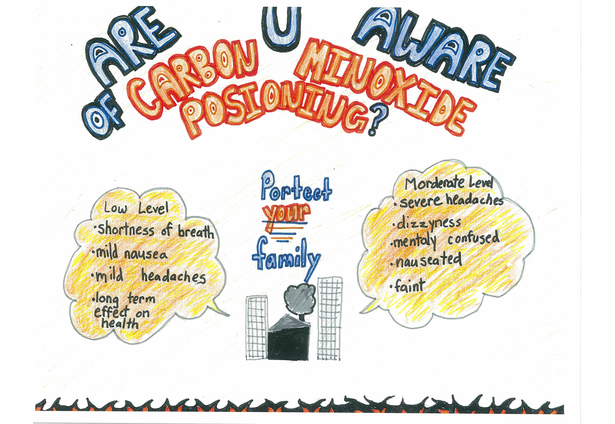 ARE U AWARE
OF CARBON MINOXIDE
POSIONING?
Portect
your
family
Low Level
•shortness of breath
•mild nausea
•mild headaches
•long term
effect on
health
Morderate Level
•severe headaches
•dizzyness
•mentaly confused
•nauseated
•faint